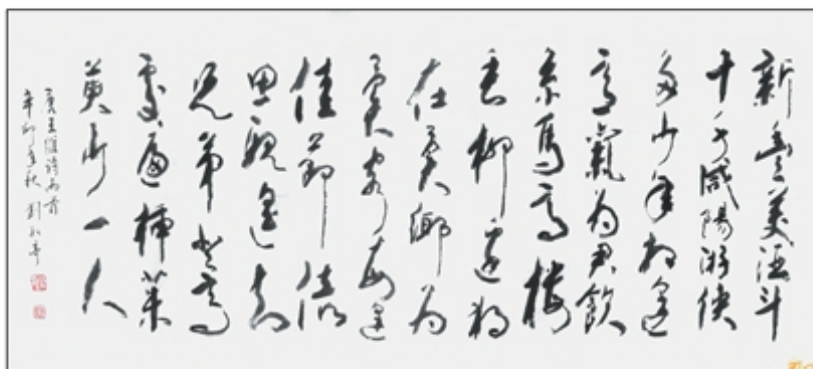 新豐美酒斗
十千咸陽游俠
多少年相逢
意氣為君飲
系馬高樓
垂柳邊獨
在異鄉為
異客每逢
佳節倍
思親遙知
兄弟登高
處遍插茱
萸少一人
唐王維詩兩首
辛卯年秋 刘